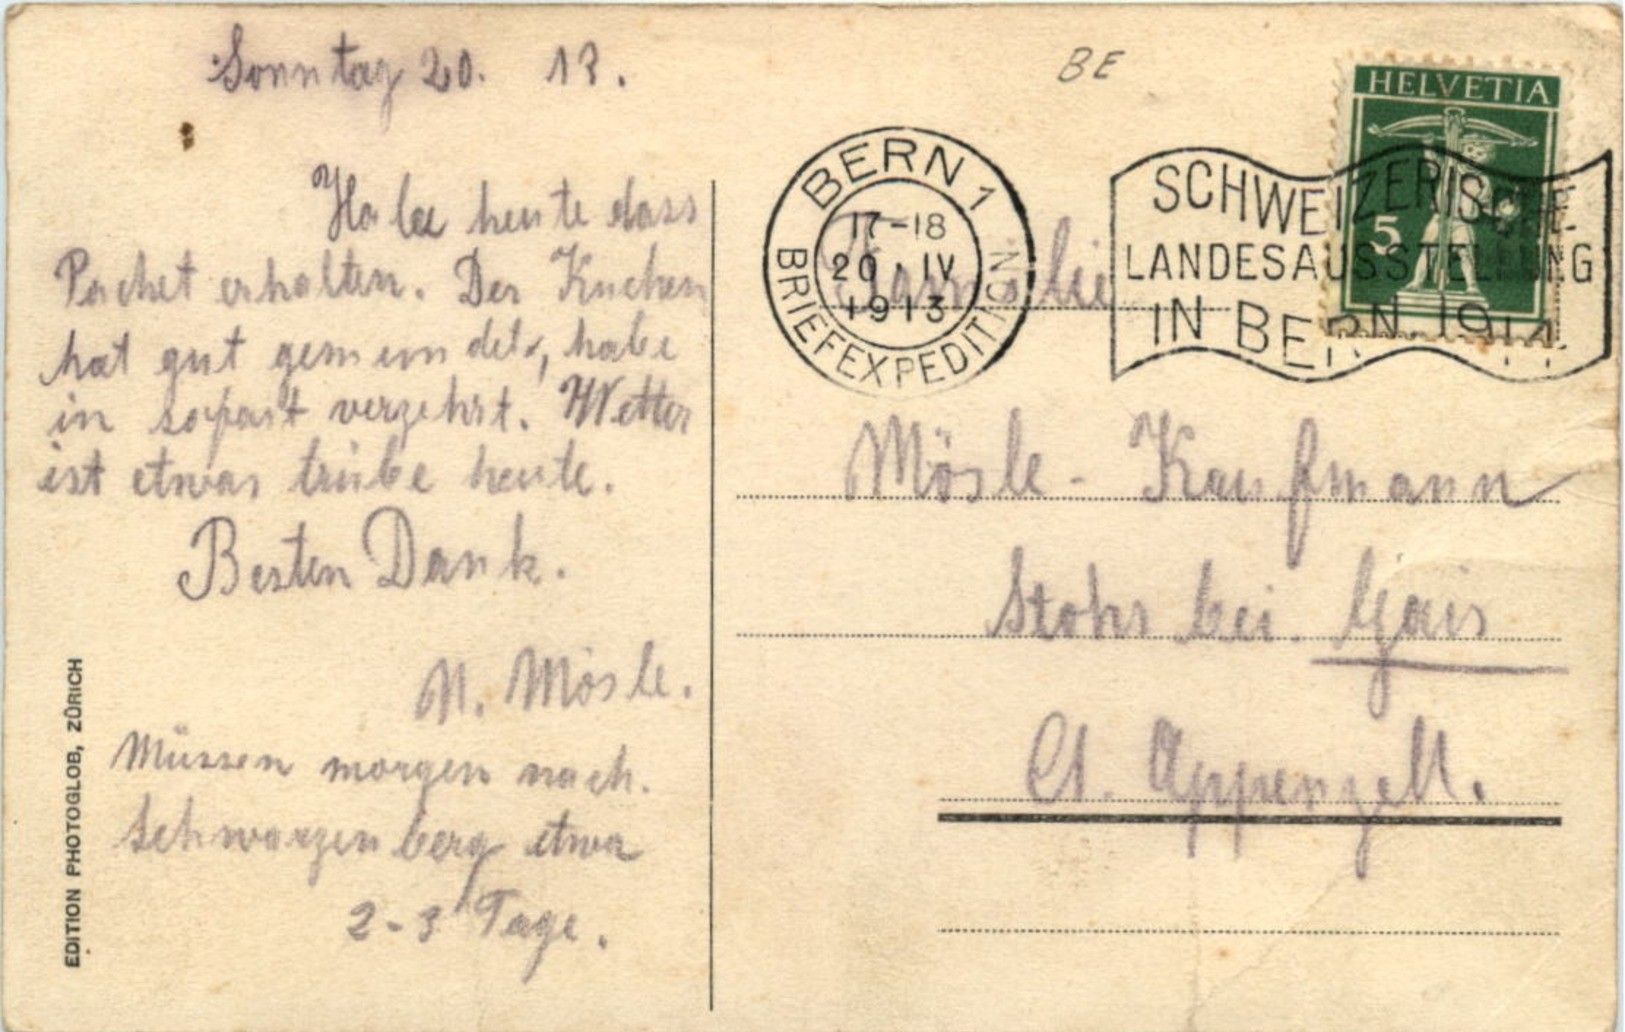 Sonntag 20. 13.
Habe heute dass
Packet erhalten. Der Kuchen
hat gut gemundet, habe
in sofort verzehrt. Wetter
ist etwas trübe heute.
Besten Dank.
N. Mösle.
Müssen morgen nach.
Schwarzenberg etwa
2-3 Tage.
EDITION PHOTOGLOB, ZÜRICH
BE
HELVETIA
5
BERN 1
17-18
20. IV
1913
BRIEFEXPEDITION
SCHWEIZERISCHE
LANDESAUSSTELLUNG
IN BERN 1914
Familie
Mösle-Kaufmann
bei Gais
Ct. Appenzell.